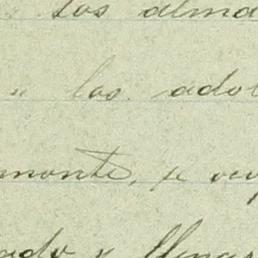 " los alma
" los adol
monte, se vey
ado y llenas